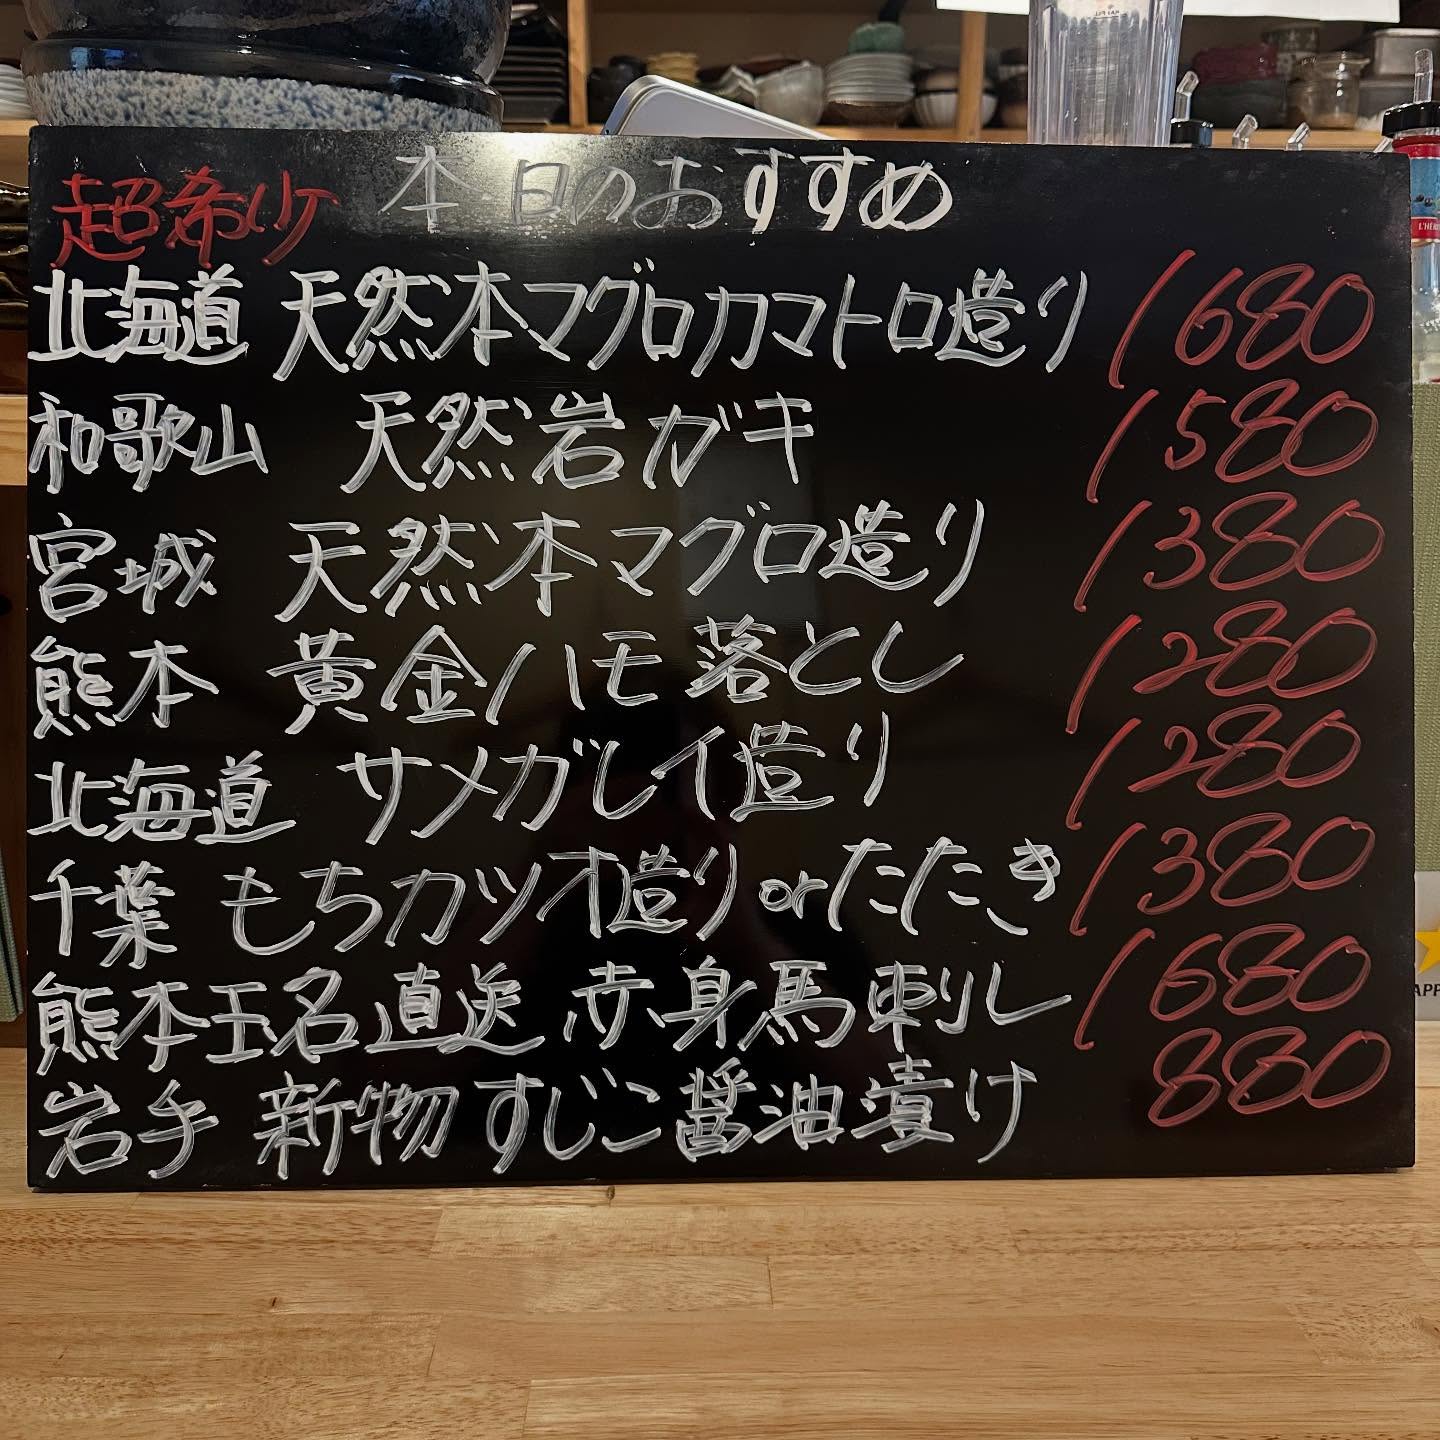 本日のおすすめ
超希少
北海道 天然本マグロカマトロ造り 1680
和歌山 天然岩ガキ 1580
宮城 天然本マグロ造り 1380
熊本 黄金ハモ落とし 1280
北海道 サメガレイ造り 1280
千葉 もちカツオ造りorたたき 1380
熊本玉名直送 赤身馬刺し 1680
岩手 新物すじこ醤油漬け 880